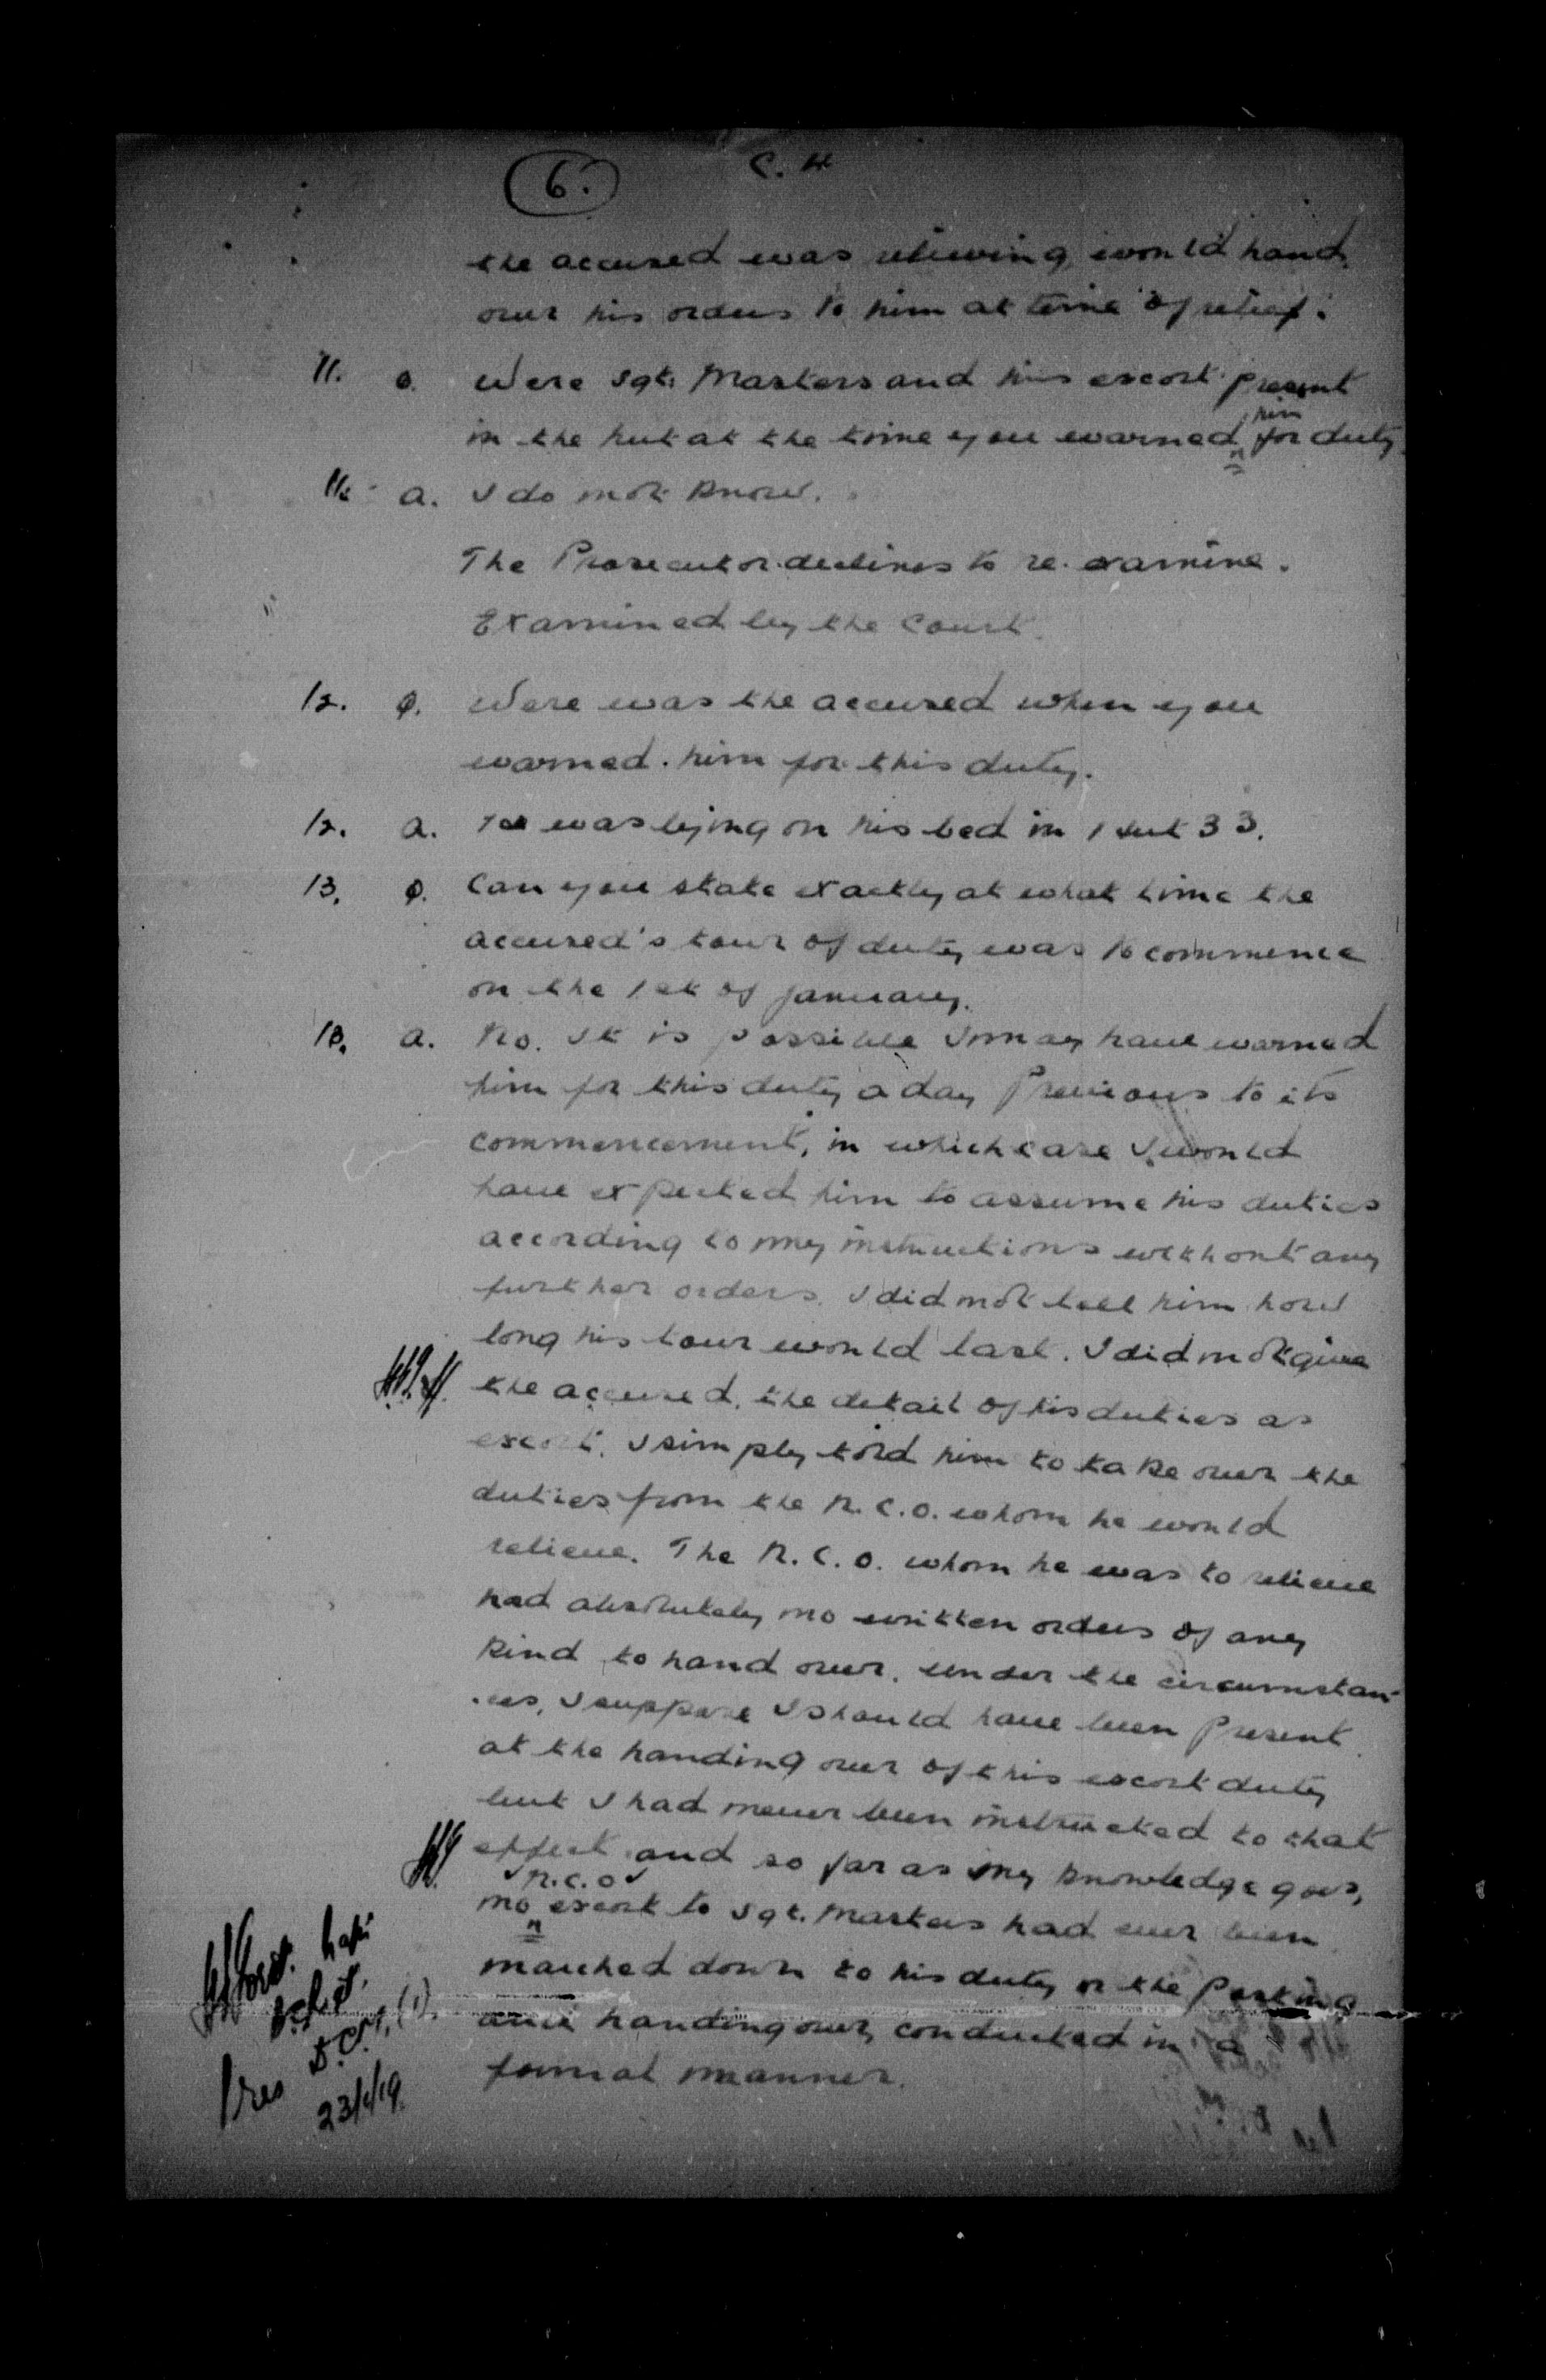 6. C. 4
the accused was relieving would hand
over his orders to him at time of relief.
11. Q. Were Sgt. Masters and his escort present
in the hut at the time you warned him for duty.
11. A. I do not know.
The Prosecutor declines to re-examine.
Examined by the Court.
12. Q. Were was the accused when you
warned him for this duty.
12. A. He was lying on his bed in Hut 33.
13. Q. Can you state exactly at what time the
accused's tour of duty was to commence
on the 1st of January.
13. A. No. It is possible I may have warned
him for this duty a day previous to its
commencement, in which case I would
have expected him to assume his duties
according to my instructions without any
further orders. I did not tell him how
long his tour would last. I did not give
the accused, the detail of his duties as
escort. I simply told him to take over the
duties from the N.C.O. whom he would
relieve. The N.C.O. whom he was to relieve
had absolutely no written orders of any
kind to hand over. Under the circumstan-
-ces, I suppose I should have been present
at the handing over of this escort duty
but I had never been instructed to that
effect and so far as my knowledge goes,
no N.C.O. escort to Sgt. Masters had ever been
marched down to his duty or the posting
and handing over, conducted in a
formal manner.
Capt.
Pres D.C.M. (1).
23/1/19.